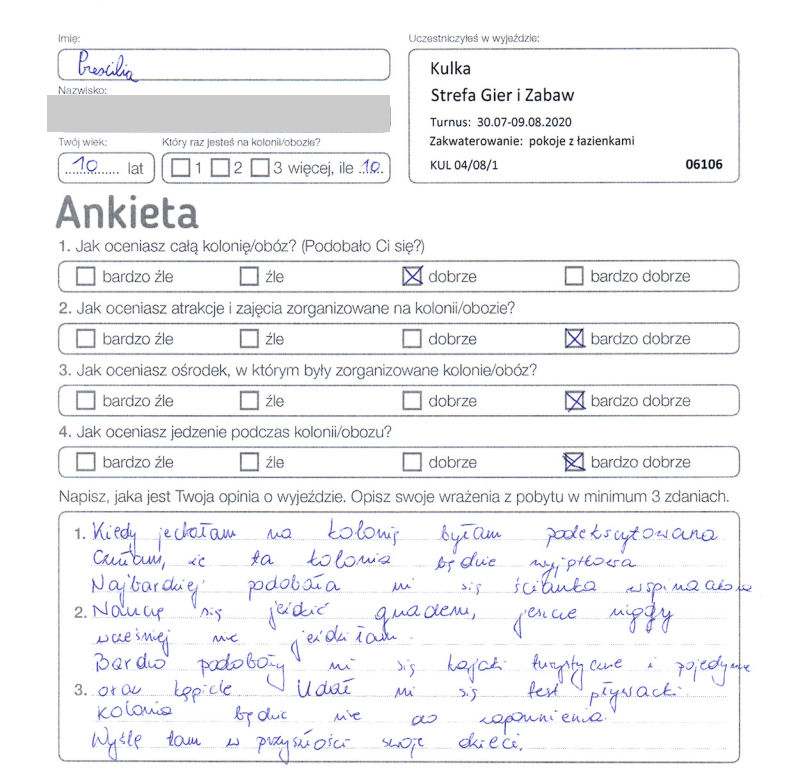 Imię:
Prescilia
Nazwisko:
Uczestniczyłeś w wyjeździe:
Kulka
Strefa Gier i Zabaw
Turnus: 30.07-09.08.2020
Zakwaterowanie: pokoje z łazienkami
KUL 04/08/1 06106
Twój wiek:
10 lat
Który raz jesteś na kolonii/obozie?
1 2 3 więcej, ile 10.
Ankieta
1. Jak oceniasz całą kolonię/obóz? (Podobało Ci się?)
bardzo źle źle dobrze bardzo dobrze
2. Jak oceniasz atrakcje i zajęcia zorganizowane na kolonii/obozie?
bardzo źle źle dobrze bardzo dobrze
3. Jak oceniasz ośrodek, w którym były zorganizowane kolonie/obóz?
bardzo źle źle dobrze bardzo dobrze
4. Jak oceniasz jedzenie podczas kolonii/obozu?
bardzo źle źle dobrze bardzo dobrze
Napisz, jaka jest Twoja opinia o wyjeździe. Opisz swoje wrażenia z pobytu w minimum 3 zdaniach.
1. Kiedy jechałam na kolonię byłam podekscytowana
Czułam, że ta kolonia będzie wyjątkowa
Najbardziej podobała mi się ścianka wspinaczkowa
2. Nauczę się jeździć quadem, jeszcze nigdy
wcześniej nie jeździłam.
Bardzo podobały mi się kajaki turystyczne i pojedyncze
3. oraz kąpiele Udał mi się test pływacki.
Kolonia będzie nie do zapomnienia.
Wyślę tam w przyszłości swoje dzieci.